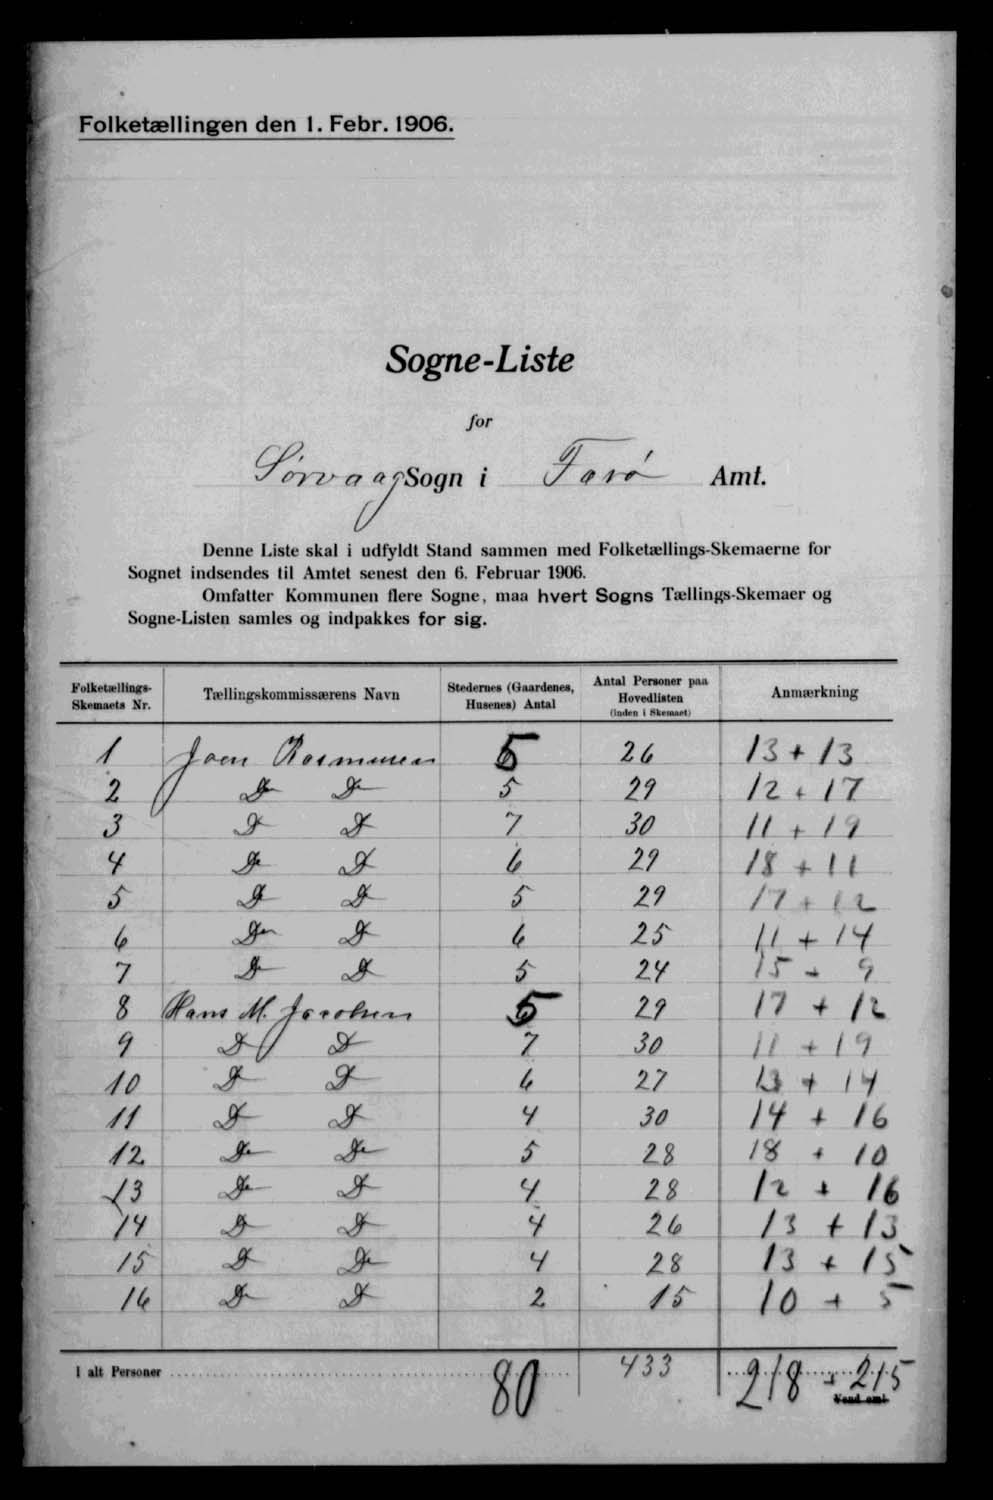 Folketællingen den 1. Febr. 1906.
Sogne-Liste
for
Sørvaag Sogn i Færø Amt.
Denne Liste skal i udfyldt Stand sammen med Folketællings-Skemaerne for
Sognet indsendes til Amtet senest den 6. Februar 1906.
Omfatter Kommunen flere Sogne, maa hvert Sogns Tællings-Skemaer og
Sogne-Listen samles og indpakkes for sig.
Folketællings-Skemaets Nr. Tællingskommissærens Navn Stedernes (Gaardenes, Husenes) Antal Antal Personer paa Hovedlisten (inden i Skemaet) Anmærkning
1 Joen Rasmussen 5 26 13 + 13
2 Do Do 5 29 12 + 17
3 Do Do 7 30 11 + 19
4 Do Do 6 29 18 + 11
5 Do Do 5 29 17 + 12
6 Do Do 6 25 11 + 14
7 Do Do 5 24 15 + 9
8 Hans M. Jacobsen 5 29 17 + 12
9 Do Do 7 30 11 + 19
10 Do Do 6 27 13 + 14
11 Do Do 4 30 14 + 16
12 Do Do 5 28 18 + 10
13 Do Do 4 28 12 + 16
14 Do Do 4 26 13 + 13
15 Do Do 4 28 13 + 15
16 Do Do 2 15 10 + 5
I alt Personer 80 433 218 + 215
Vend om!